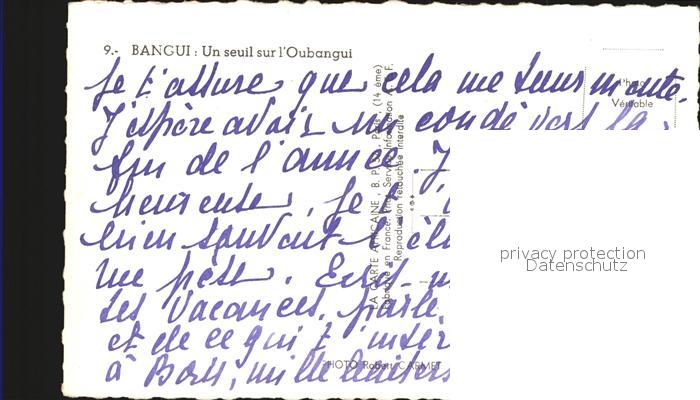 9.- BANGUI : Un seuil sur l'Oubangui
Je t'assure que cela me
J'espère avoir un congé vers la
fin de l'année. J
heureuse. Je t'
bien souvent
me pèse. Ecris-m
tes vacances, parle
et de ce qui t'intér
à Bous, mille baisers
LA CARTE AFRICAINE, B. P. PARIS (14 ème)
Fabriqué en France. Service Information A. E. F.
Reproduction retouchée interdite
Photo
Véritable
PHOTO Robert CARMET
privacy protection
Datenschutz